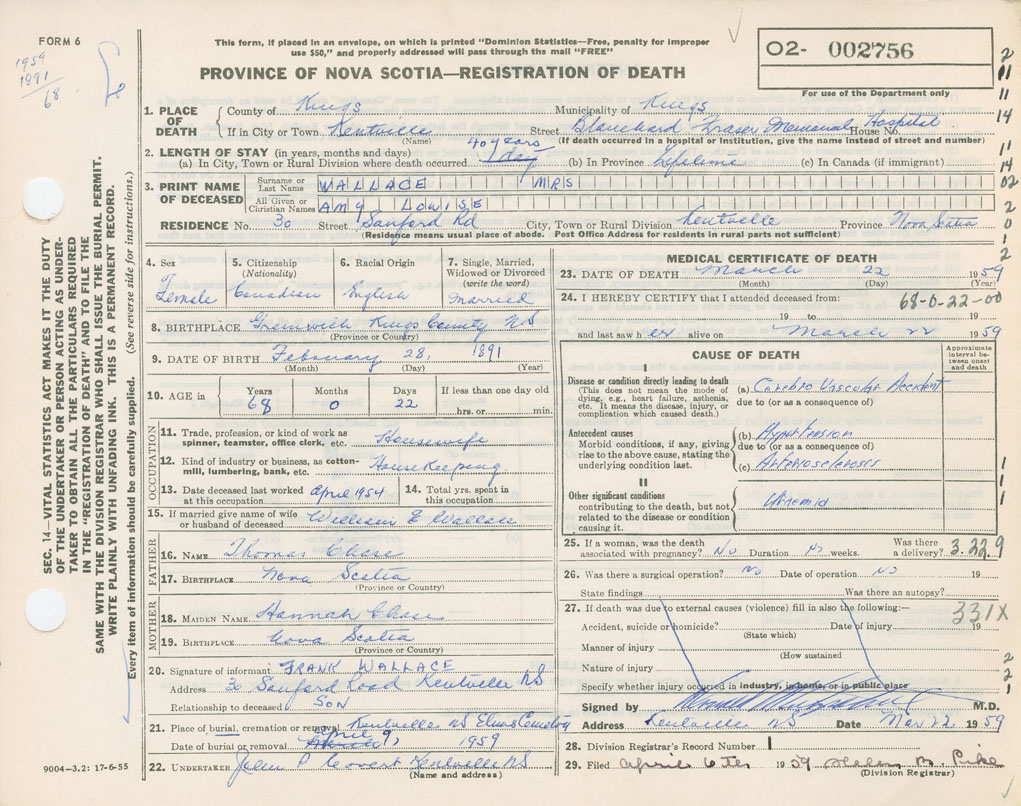 FORM 6
1959
1891
68
This form, if placed in an envelope, on which is printed "Dominion Statistics—Free, penalty for improper
use $50," and properly addressed will pass through the mail "FREE"
PROVINCE OF NOVA SCOTIA—REGISTRATION OF DEATH
02- 002756
For use of the Department only
SEC. 14—VITAL STATISTICS ACT MAKES IT THE DUTY
OF THE UNDERTAKER OR PERSON ACTING AS UNDER-
TAKER TO OBTAIN ALL THE PARTICULARS REQUIRED
IN THE "REGISTRATION OF DEATH" AND TO FILE THE
SAME WITH THE DIVISION REGISTRAR WHO SHALL ISSUE THE BURIAL PERMIT.
WRITE PLAINLY WITH UNFADING INK. THIS IS A PERMANENT RECORD.
Every item of information should be carefully supplied. (See reverse side for instructions.)
1. PLACE OF DEATH County of Kings Municipality of Kings
If in City or Town Kentville Street Blanchard Fraser Memorial Hospital House No.
(Name) (If death occurred in a hospital or Institution, give the name instead of street and number)
2. LENGTH OF STAY (in years, months and days) 40 years
(a) In City, Town or Rural Division where death occurred 1 day (b) In Province Lifetime (c) In Canada (if immigrant)
3. PRINT NAME OF DECEASED Surname or Last Name WALLACE MRS
All Given or Christian Names AMY LOWISE
RESIDENCE No. 30 Street Sanford Rd City, Town or Rural Division Kentville Province Nova Scotia
(Residence means usual place of abode. Post Office Address for residents in rural parts not sufficient)
4. Sex Female
5. Citizenship (Nationality) Canadian
6. Racial Origin English
7. Single, Married, Widowed or Divorced (write the word) Married
8. BIRTHPLACE Greenwich Kings County NS
(Province or Country)
9. DATE OF BIRTH February 28, 1891
(Month) (Day) (Year)
10. AGE in Years 68 Months 0 Days 22 If less than one day old hrs. or min.
OCCUPATION
11. Trade, profession, or kind of work as spinner, teamster, office clerk, etc. Housewife
12. Kind of industry or business, as cotton-mill, lumbering, bank, etc. Housekeeping
13. Date deceased last worked at this occupation April 1954 14. Total yrs. spent in this occupation
15. If married give name of wife or husband of deceased William E Wallace
FATHER
16. NAME Thomas Chase
17. BIRTHPLACE Nova Scotia
(Province or Country)
MOTHER
18. MAIDEN NAME Hannah Chase
19. BIRTHPLACE Nova Scotia
(Province or Country)
20. Signature of informant FRANK WALLACE
Address 30 Sanford Road Kentville NS
Relationship to deceased SON
21. Place of burial, cremation or removal Kentville NS Elms Cemetery
Date of burial or removal April 9, 1959
22. UNDERTAKER John P Covert Kentville NS
(Name and address)
9004—3.2: 17-6-55
MEDICAL CERTIFICATE OF DEATH
23. DATE OF DEATH March 22 1959
(Month) (Day) (Year)
24. I HEREBY CERTIFY that I attended deceased from: 68-0-22-00
19 to 19
and last saw her alive on March 22 1959
CAUSE OF DEATH
Approximate interval between onset and death
Disease or condition directly leading to death
(This does not mean the mode of dying, e.g., heart failure, asthenia, etc. It means the disease, injury, or complication which caused death.)
(a) Cerebro Vascular Accident
due to (or as a consequence of)
Antecedent causes
Morbid conditions, if any, giving rise to the above cause, stating the underlying condition last.
(b) Hypertension
due to (or as a consequence of)
(c) Arteriosclerosis
II
Other significant conditions
contributing to the death, but not related to the disease or condition causing it.
Uremia
25. If a woman, was the death associated with pregnancy? No Duration No weeks. Was there a delivery? 3.22.9
26. Was there a surgical operation? No Date of operation No 19
State findings Was there an autopsy?
27. If death was due to external causes (violence) fill in also the following:— 331X
Accident, suicide or homicide? Date of injury 19
(State which)
Manner of injury
(How sustained
Nature of injury
Specify whether injury occurred in industry, in home, or in public place
Signed by M.D.
Address Kentville NS Date Mar 22 1959
28. Division Registrar's Record Number 1
29. Filed April 6th 1959 Helen M. Pike
(Division Registrar)
2
11
11
14
11
14
02
2
0
1
2
1
1
1
2
2
1